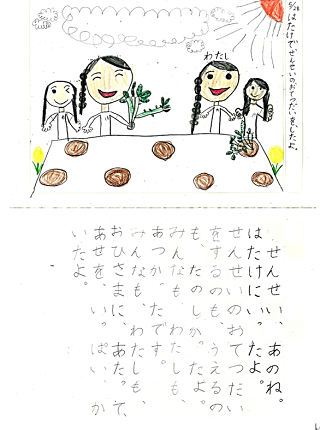 5/28 はたけでせんせいのおてつだいを、したよ。
わたし
せんせい、あのね。
はたけにいったよ。
せんせいのおてつだい
をするのも、うえるの
も、たのしかったよ。
みんなも、わたしも、
あつかったです。
みんなも、わたしも、
おひさまに、あたって、
あせを、いっぱい、か
いたよ。